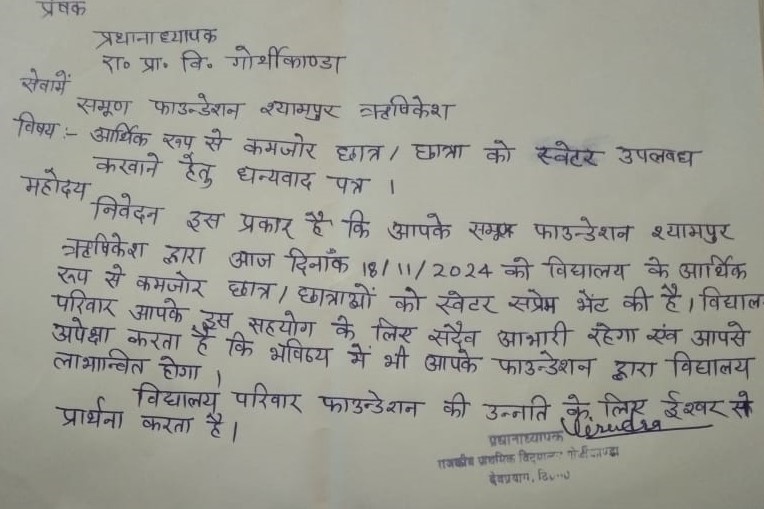 प्रेषक
प्रधानाध्यापक
रा० प्रा० वि० गोर्थीकाण्डा
सेवामें
समूण फाउन्डेशन श्यामपुर ऋषिकेश
विषय :- आर्थिक रूप से कमजोर छात्र / छात्रा को स्वेटर उपलबध
करवाने हेतु धन्यवाद पत्र ।
महोदय
निवेदन इस प्रकार है कि आपके समूण फाउन्डेशन श्यामपुर
ऋषिकेश द्वारा आज दिनाँक 18/11/2024 को विद्यालय के आर्थिक
रूप से कमजोर छात्र / छात्राओं को स्वेटर सप्रेम भेंट की है। विद्याल
परिवार आपके इस सहयोग के लिए सदैव आभारी रहेगा एवं आपसे
अपेक्षा करता है कि भविष्य में भी आपके फाउन्डेशन द्वारा विद्यालय
लाभान्वित होगा ।
विद्यालय परिवार फाउन्डेशन की उन्नति के लिए ईश्वर से
प्रार्थना करता है।
प्रधानाध्यापक
राजकीय प्राथमिक विद्यालय
देवप्रयाग,